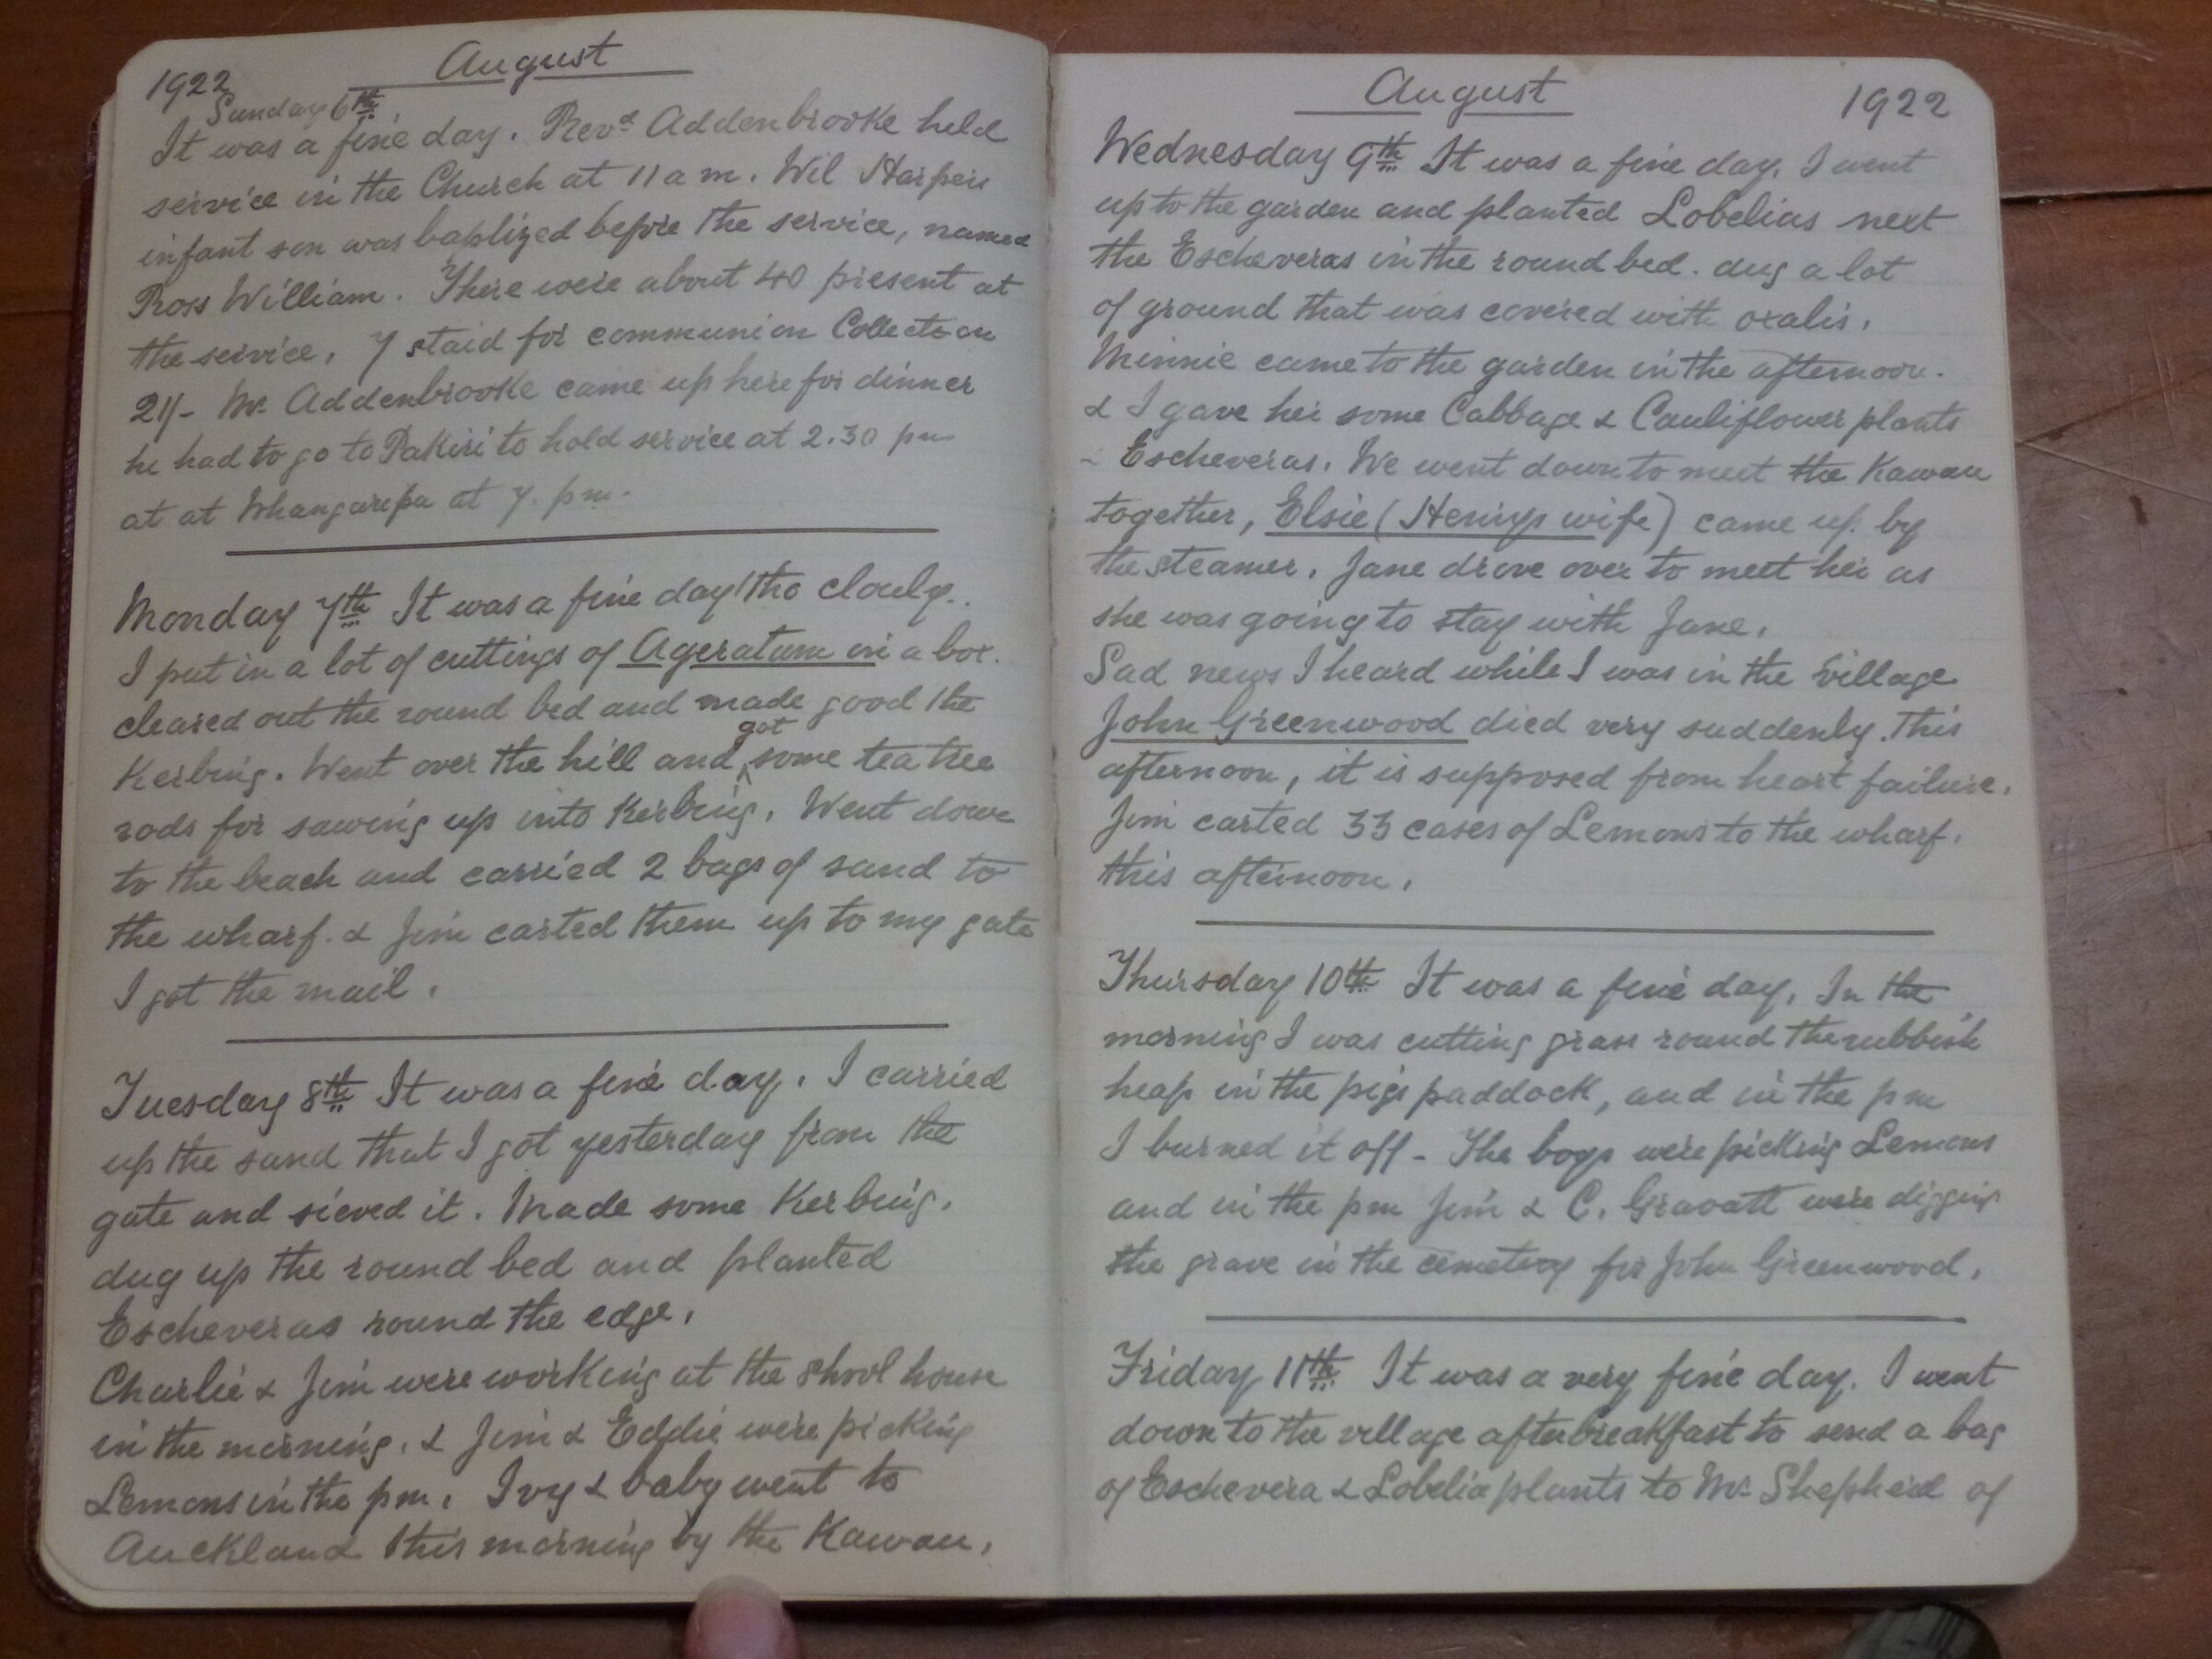 August
1922
Sunday 6th
It was a fine day. Revd Addenbrooke held
service in the Church at 11 a m. Wil Harpers
infant son was baptized before the service, named
Ross William. There were about 40 present at
the service. 7 staid for communion Collection
21/- Mr Addenbrooke came up here for dinner
he had to go to Pakiri to hold service at 2.30 pm
at at Whangaripa at 7. pm.
Monday 7th It was a fine day tho clouly.
I put in a lot of cuttings of Ageratum in a box.
cleared out the round bed and made good the
Kerbing. Went over the hill and got some tea tree
rods for sawing up into Kerbing. Went down
to the beach and carried 2 bags of sand to
the wharf. & Jim carted them up to my gate
I got the mail.
Tuesday 8th It was a fine day. I carried
up the sand that I got yesterday from the
gate and sieved it. Made some Kerbing.
dug up the round bed and planted
Escheveras round the edge.
Charlie & Jim were working at the shool house
in the morning. & Jim & Eddie were picking
Lemons in the pm. Ivy & baby went to
Auckland this morning by the Kawau.
August
1922
Wednesday 9th It was a fine day. I went
up to the garden and planted Lobelias next
the Escheveras in the round bed. dug a lot
of ground that was covered with oxalis.
Minnie came to the garden in the afternoon.
& I gave her some Cabbage & Cauliflower plants
- Escheveras. We went down to meet the Kawau
together, Elsie (Henrys wife) came up by
the steamer. Jane drove over to meet her as
she was going to stay with Jane.
Sad news I heard while I was in the village
John Greenwood died very suddenly. This
afternoon, it is supposed from heart failure.
Jim carted 33 cases of Lemons to the wharf.
this afternoon.
Thursday 10th It was a fine day. In the
morning I was cutting grass round the rubbish
heap in the pigs paddock, and in the pm
I burned it off - The boys were picking Lemons
and in the pm Jim & C. Gravatt were digging
the grave in the cemetery for John Greenwood.
Friday 11th It was a very fine day. I went
down to the village after breakfast to send a bag
of Eschevera & Lobelia plants to Mr Shepherd of